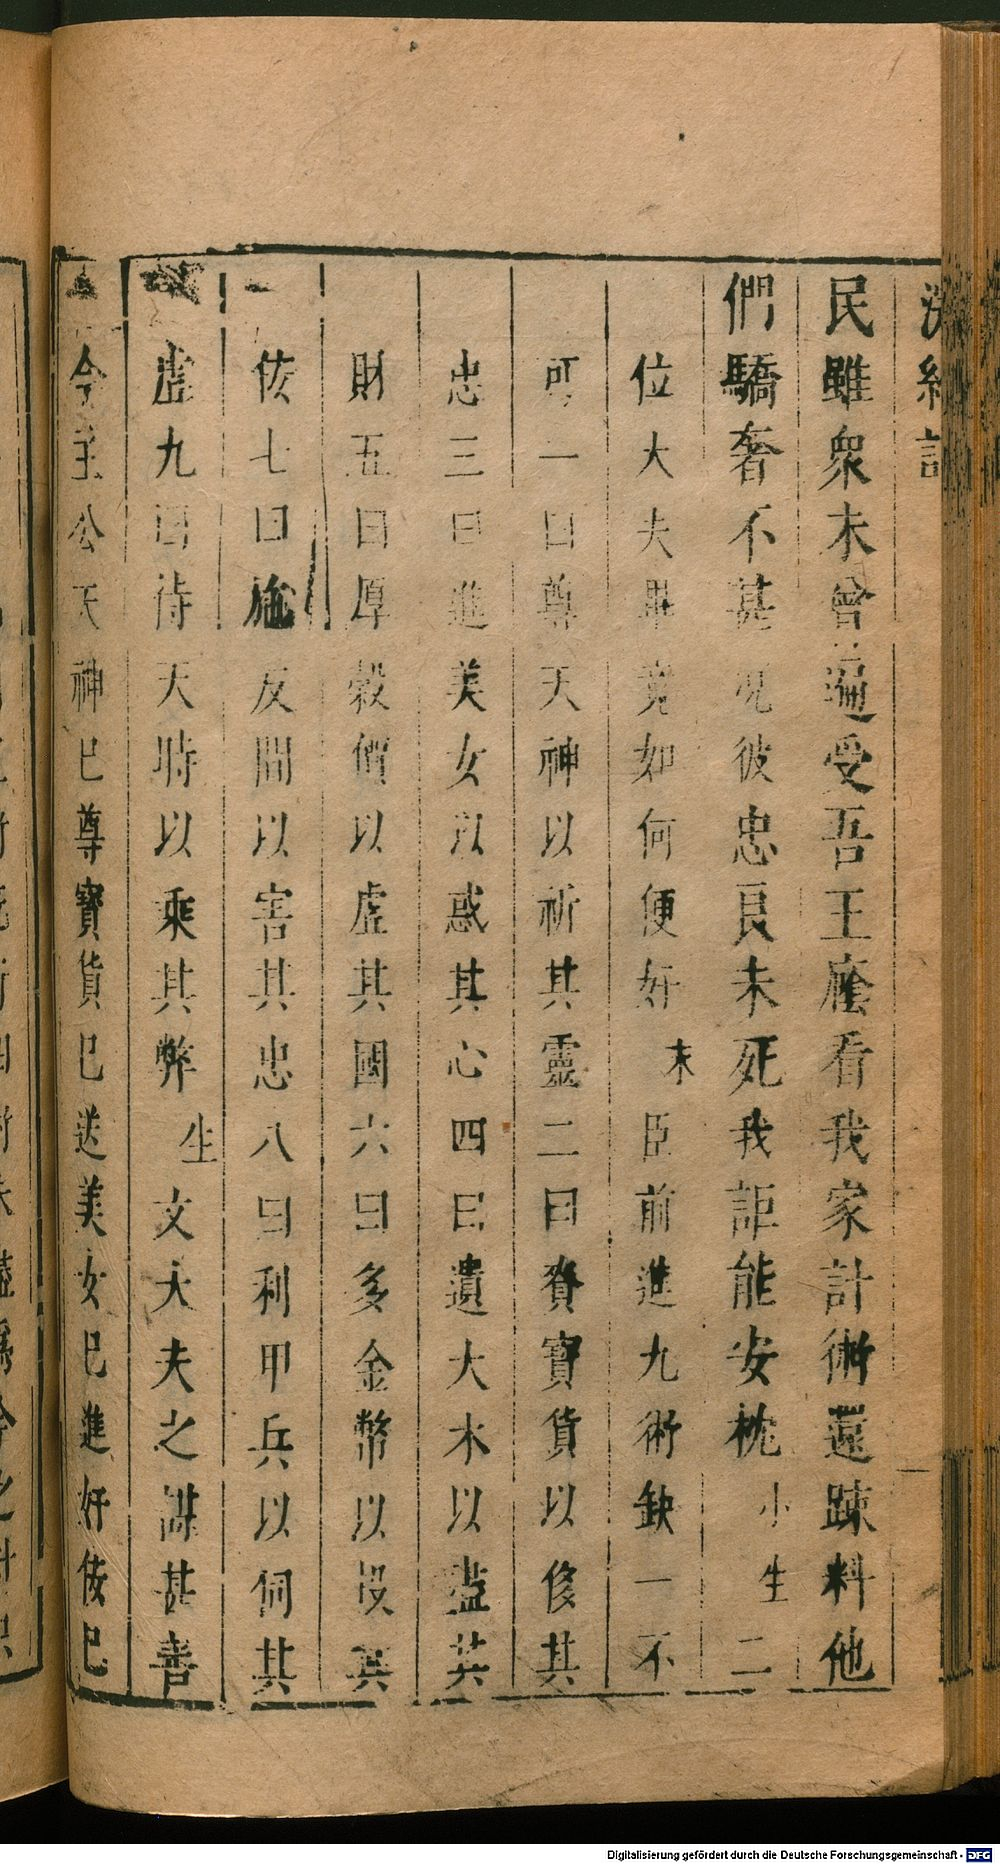 浣紗記
民雖衆未曾遍受吾王廕看我家計術還踈料他
們驕奢不甚況彼忠良未死我詎能安枕小生二
位大夫畢竟如何便好末臣前進九術缺一不
可一曰尊天神以祈其靈二曰賫寶貨以俢其
忠三曰進美女以惑其心四曰遺大木以盡其
財五曰厚穀價以虛其國六曰多金幣以投其
佞七曰施反間以害其忠八曰利甲兵以伺其
虛九曰待天時以乘其弊生文大夫之謀甚善
今主公天神巳尊寶貨巳送美女巳進奸佞巳
Digitalisierung gefördert durch die Deutsche Forschungsgemeinschaft - DFG